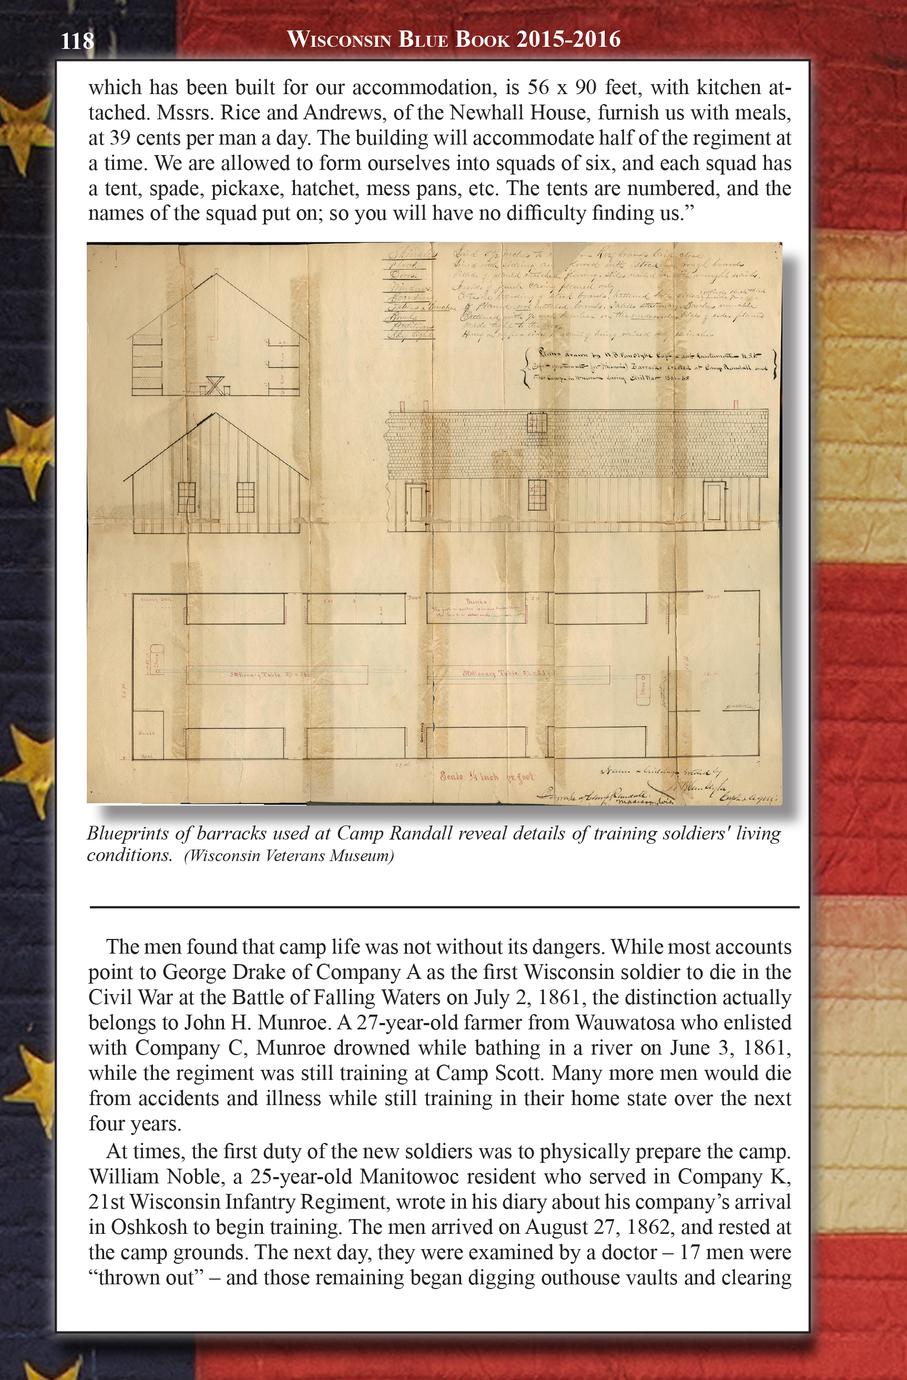 118
Wisconsin Blue Book 2015-2016
which has been built for our accommodation, is 56 x 90 feet, with kitchen at-
tached. Mssrs. Rice and Andrews, of the Newhall House, furnish us with meals,
at 39 cents per man a day. The building will accommodate half of the regiment at
a time. We are allowed to form ourselves into squads of six, and each squad has
a tent, spade, pickaxe, hatchet, mess pans, etc. The tents are numbered, and the
names of the squad put on; so you will have no difficulty finding us.”
Stationary Table
Stationary Table
Scale ¼ inch pr foot
Madison, Wis
Blueprints of barracks used at Camp Randall reveal details of training soldiers' living
conditions. (Wisconsin Veterans Museum)
The men found that camp life was not without its dangers. While most accounts
point to George Drake of Company A as the first Wisconsin soldier to die in the
Civil War at the Battle of Falling Waters on July 2, 1861, the distinction actually
belongs to John H. Munroe. A 27-year-old farmer from Wauwatosa who enlisted
with Company C, Munroe drowned while bathing in a river on June 3, 1861,
while the regiment was still training at Camp Scott. Many more men would die
from accidents and illness while still training in their home state over the next
four years.
At times, the first duty of the new soldiers was to physically prepare the camp.
William Noble, a 25-year-old Manitowoc resident who served in Company K,
21st Wisconsin Infantry Regiment, wrote in his diary about his company’s arrival
in Oshkosh to begin training. The men arrived on August 27, 1862, and rested at
the camp grounds. The next day, they were examined by a doctor – 17 men were
“thrown out” – and those remaining began digging outhouse vaults and clearing